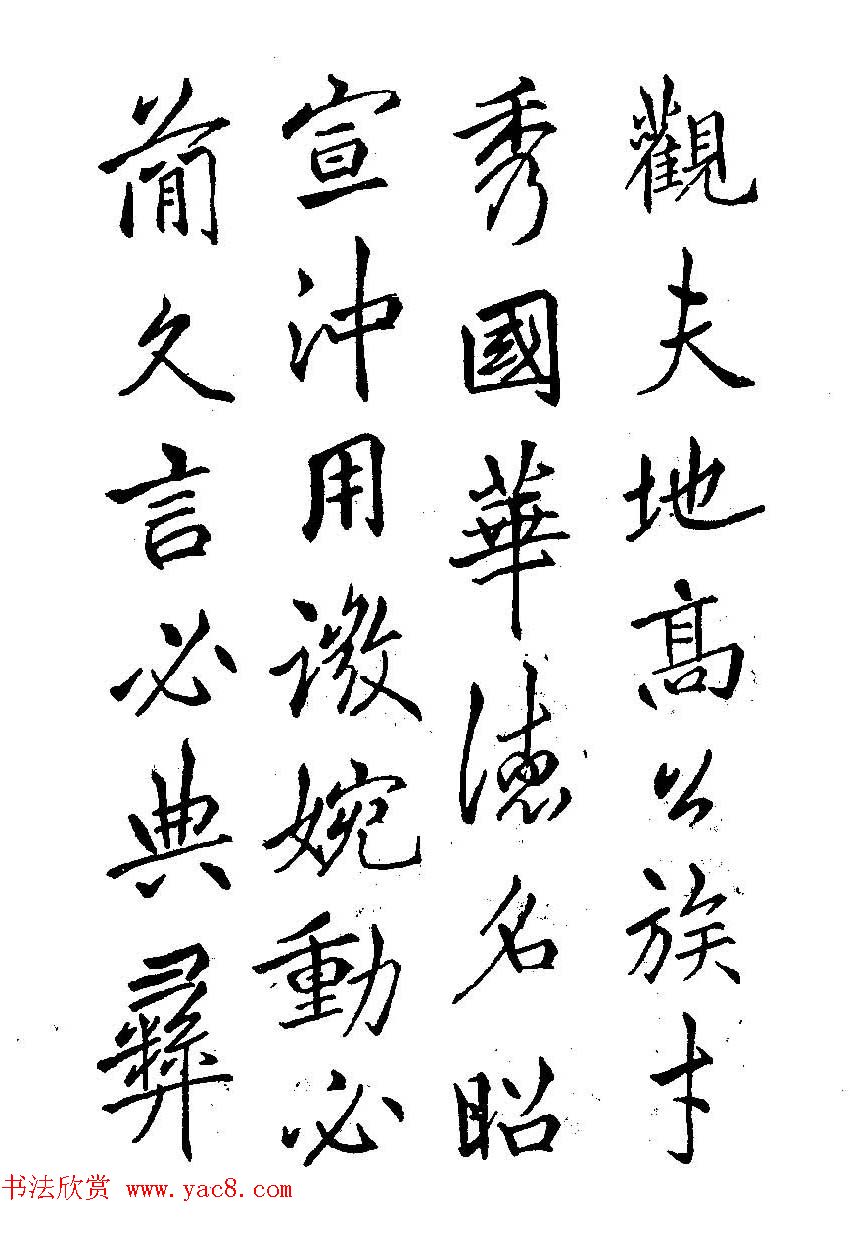 觀夫地高公族才
秀國華德名昭
宣沖用徵婉動必
簡久言必典彝
书法欣赏 www.yac8.com